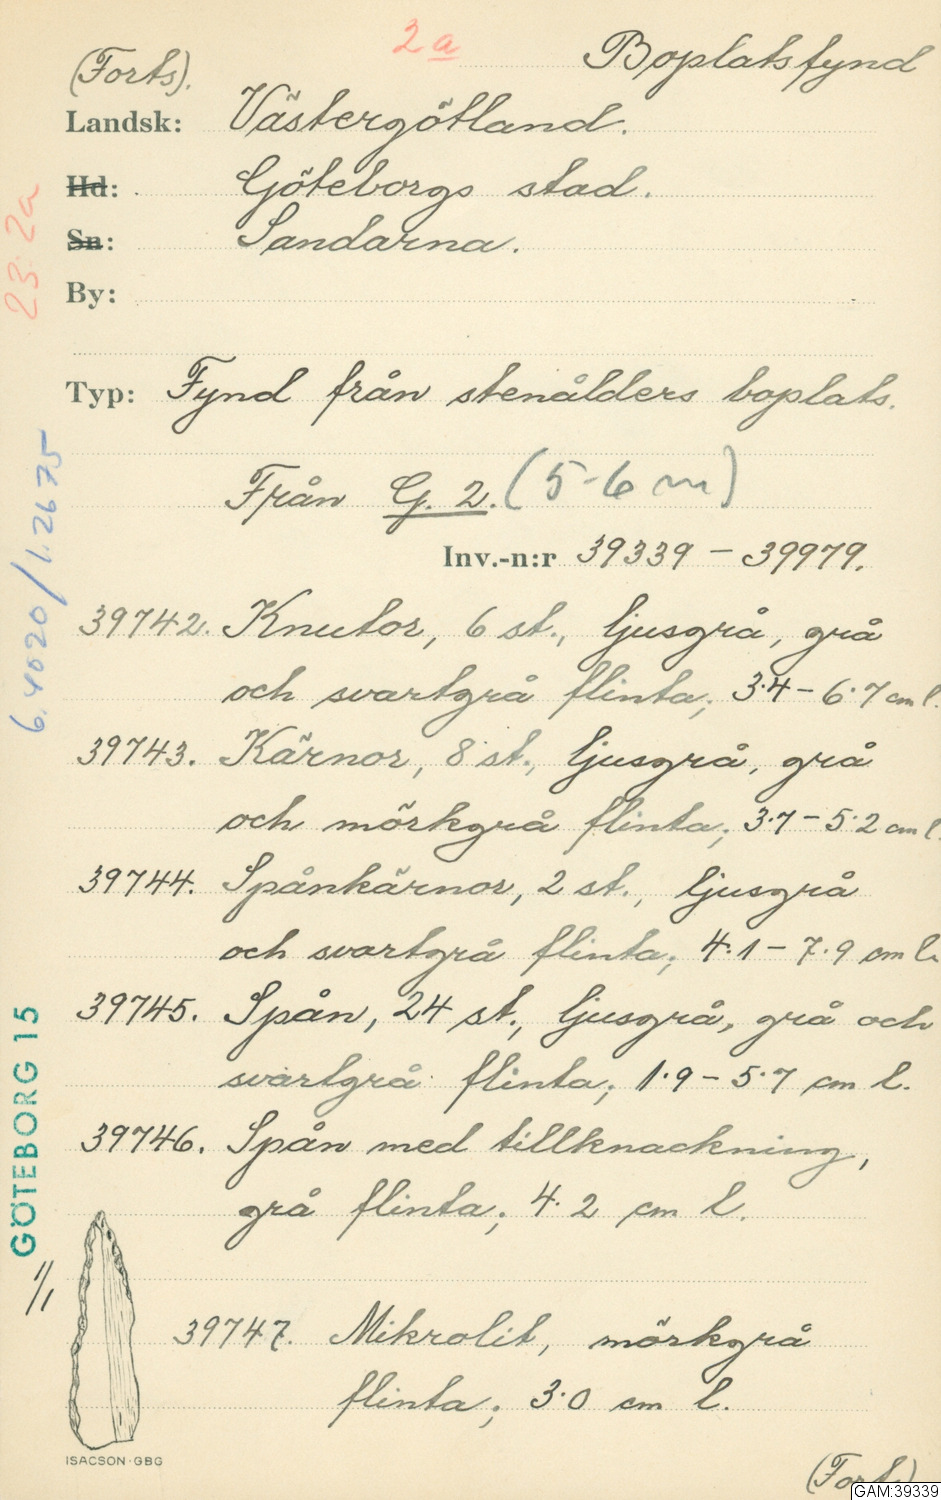 2a
Boplatsfynd
(Forts).
Landsk: Västergötland.
Hd: Göteborgs stad.
Sn: Sandarna.
By:
Typ: Fynd från stenålders boplats.
Från G. 2. (5-6 m)
Inv.-n:r 39339 – 39979.
39742. Knutor, 6 st., ljusgrå, grå
och svartgrå flinta; 3·4 – 6·7 cm l.
39743. Kärnor, 8 st., ljusgrå, grå
och mörkgrå flinta; 3·7 – 5·2 cm l.
39744. Spånkärnor, 2 st., ljusgrå
och svartgrå flinta; 4·1 – 7·9 cm l.
39745. Spån, 24 st., ljusgrå, grå och
svartgrå flinta; 1·9 – 5·7 cm l.
39746. Spån med tillknackning,
grå flinta; 4·2 cm l.
39747. Mikrolit, mörkgrå
flinta; 3·0 cm l.
(Forts)
1/1
ISACSON·GBG
GÖTEBORG 15
6.4020/1.2675
23 2a
GAM:39339